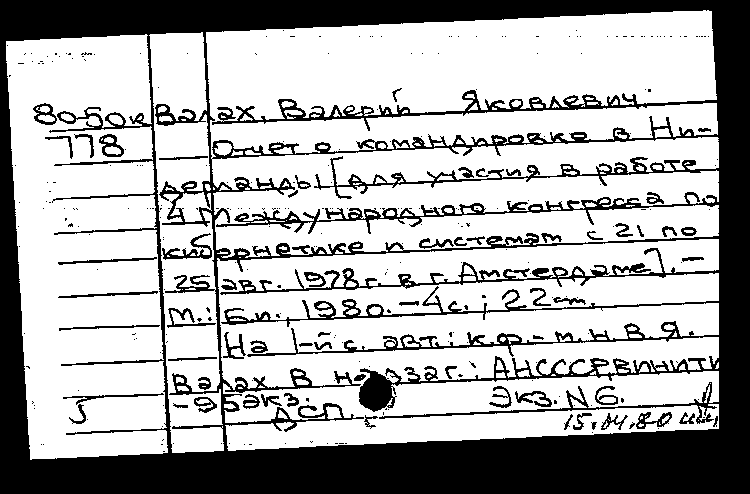 80-50к Валах, Валерий Яковлевич.
778 Отчет о командировке в Ни-
дерланды [для участия в работе
4 Международного конгресса по
кибернетике и системам с 21 по
25 авг. 1978 г. в г. Амстердаме]. –
М.: Б.и., 1980. – 4 с.; 22 см.
На 1-й с. авт.: к.ф.-м.н. В.Я.
Валах. В надзаг.: АН СССР, ВИНИТИ
5 – 95 экз. ДСП. Экз. N 6.
15.04.80